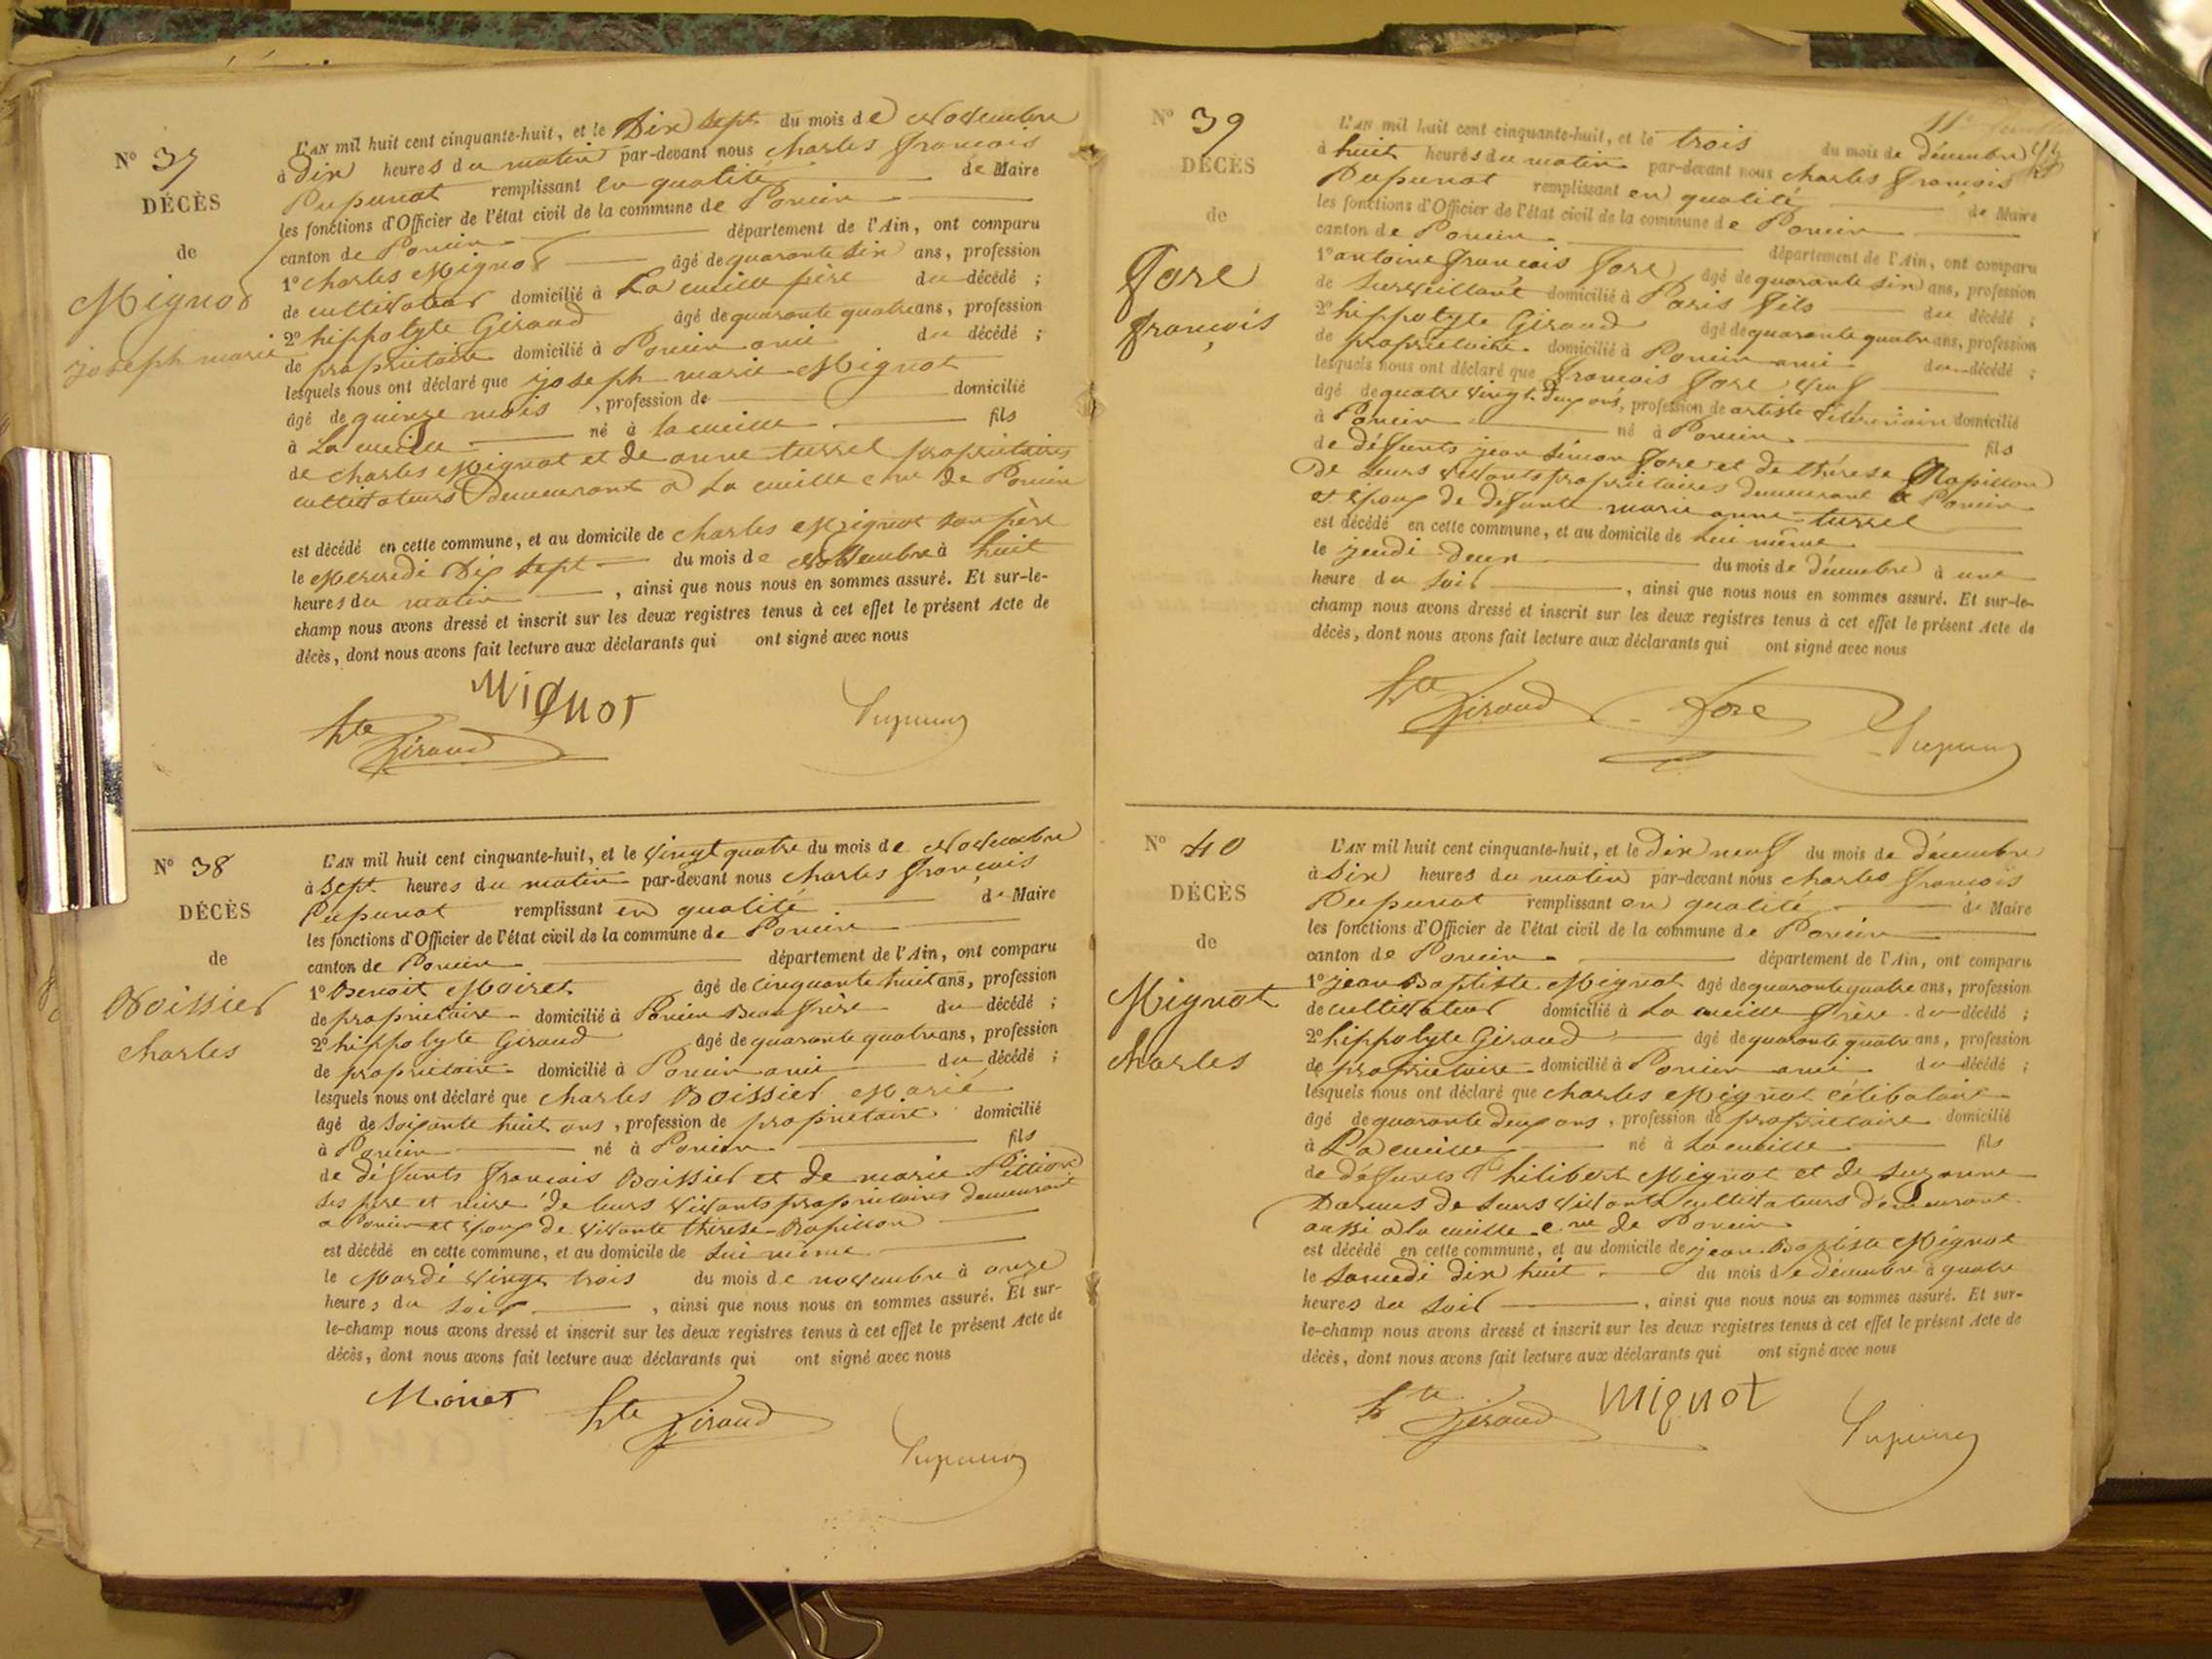 N° 37
DÉCÈS
de
Mignot
joseph marie
L'AN mil huit cent cinquante-huit, et le Dix sept du mois de Novembre
à Dix heures du matin par-devant nous charles françois
Dupunat remplissant en qualité de Maire
les fonctions d'Officier de l'état civil de la commune de Poncin
canton de Poncin département de l'Ain, ont comparu
1° charles Mignot âgé de quarante six ans, profession
de cultivateur domicilié à La cueille père du décédé ;
2° hippolyte Giraud âgé de quarante quatre ans, profession
de propriétaire domicilié à Poncin ami du décédé ;
lesquels nous ont déclaré que joseph marie Mignot
âgé de quinze mois , profession de domicilié
à La cueille né à La cueille fils
de charles Mignot et de anne turrel propriétaires
cultivateurs Demeurant à La cueille cne de Poncin
est décédé en cette commune, et au domicile de charles Mignot son père
le Mercredi Dix sept du mois de Novembre à huit
heures du matin , ainsi que nous nous en sommes assuré. Et sur-le-
champ nous avons dressé et inscrit sur les deux registres tenus à cet effet le présent Acte de
décès, dont nous avons fait lecture aux déclarants qui ont signé avec nous
Mignot
hte Giraud Dupunat
N° 38
DÉCÈS
de
Boissier
charles
L'AN mil huit cent cinquante-huit, et le vingt quatre du mois de Novembre
à sept heures du matin par-devant nous charles françois
Dupunat remplissant en qualité de Maire
les fonctions d'Officier de l'état civil de la commune de Poncin
canton de Poncin département de l'Ain, ont comparu
1° Benoit Moiret âgé de cinquante huit ans, profession
de propriétaire domicilié à Poncin Beau frère du décédé ;
2° hippolyte Giraud âgé de quarante quatre ans, profession
de propriétaire domicilié à Poncin ami du décédé ;
lesquels nous ont déclaré que charles Boissier Marié
âgé de soixante huit ans , profession de propriétaire domicilié
à Poncin né à Poncin fils
de défunts françois Boissier et de marie Pittion
ses père et mère de leurs vivants propriétaires demeurant
a Poncin et époux de vivante thérèse Rapillon
est décédé en cette commune, et au domicile de lui même
le Mardi vingt trois du mois de novembre à onze
heures du soir , ainsi que nous nous en sommes assuré. Et sur-
le-champ nous avons dressé et inscrit sur les deux registres tenus à cet effet le présent Acte de
décès, dont nous avons fait lecture aux déclarants qui ont signé avec nous
Moiret hte Giraud Dupunat
N° 39
DÉCÈS
de
Gore
françois
L'AN mil huit cent cinquante-huit, et le trois du mois de décembre
à huit heures du matin par-devant nous charles françois
Dupunat remplissant en qualité de Maire
les fonctions d'Officier de l'état civil de la commune de Poncin
canton de Poncin département de l'Ain, ont comparu
1° antoine françois Gore âgé de quarante six ans, profession
de surveillant domicilié à Paris fils du décédé ;
2° hippolyte Giraud âgé de quarante quatre ans, profession
de propriétaire domicilié à Poncin ami du décédé ;
lesquels nous ont déclaré que françois Gore veuf
âgé de quatre vingt deux ans, profession de artiste vétérinaire domicilié
à Poncin né à Poncin fils
de défunts jean simon Gore et de thérèse Rapillon
De leurs vivants propriétaires demeurant à Poncin
et époux de defunte marie anne turrel
est décédé en cette commune, et au domicile de lui même
le jeudi deux du mois de décembre à une
heure du soir , ainsi que nous nous en sommes assuré. Et sur-le-
champ nous avons dressé et inscrit sur les deux registres tenus à cet effet le présent Acte de
décès, dont nous avons fait lecture aux déclarants qui ont signé avec nous
hte Giraud Gore Dupunat
N° 40
DÉCÈS
de
Mignot
charles
L'AN mil huit cent cinquante-huit, et le Dix neuf du mois de décembre
à Dix heures du matin par-devant nous charles françois
Dupunat remplissant en qualité de Maire
les fonctions d'Officier de l'état civil de la commune de Poncin
canton de Poncin département de l'Ain, ont comparu
1° jean Baptiste Mignot âgé de quarante quatre ans, profession
de cultivateur domicilié à La cueille frère du décédé ;
2° hippolyte Giraud âgé de quarante quatre ans, profession
de propriétaire domicilié à Poncin ami du décédé ;
lesquels nous ont déclaré que charles Mignot célibataire
âgé de quarante deux ans , profession de propriétaire domicilié
à La cueille né à La cueille fils
de défunts Philibert Mignot et de suzanne
Darmes de leurs vivants cultivateurs demeurant
aussi à la cueille cne de Poncin
est décédé en cette commune, et au domicile de jean Baptiste Mignot
le samedi dix huit du mois de décembre à quatre
heures du soir , ainsi que nous nous en sommes assuré. Et sur-
le-champ nous avons dressé et inscrit sur les deux registres tenus à cet effet le présent Acte de
décès, dont nous avons fait lecture aux déclarants qui ont signé avec nous
hte Giraud Mignot Dupunat